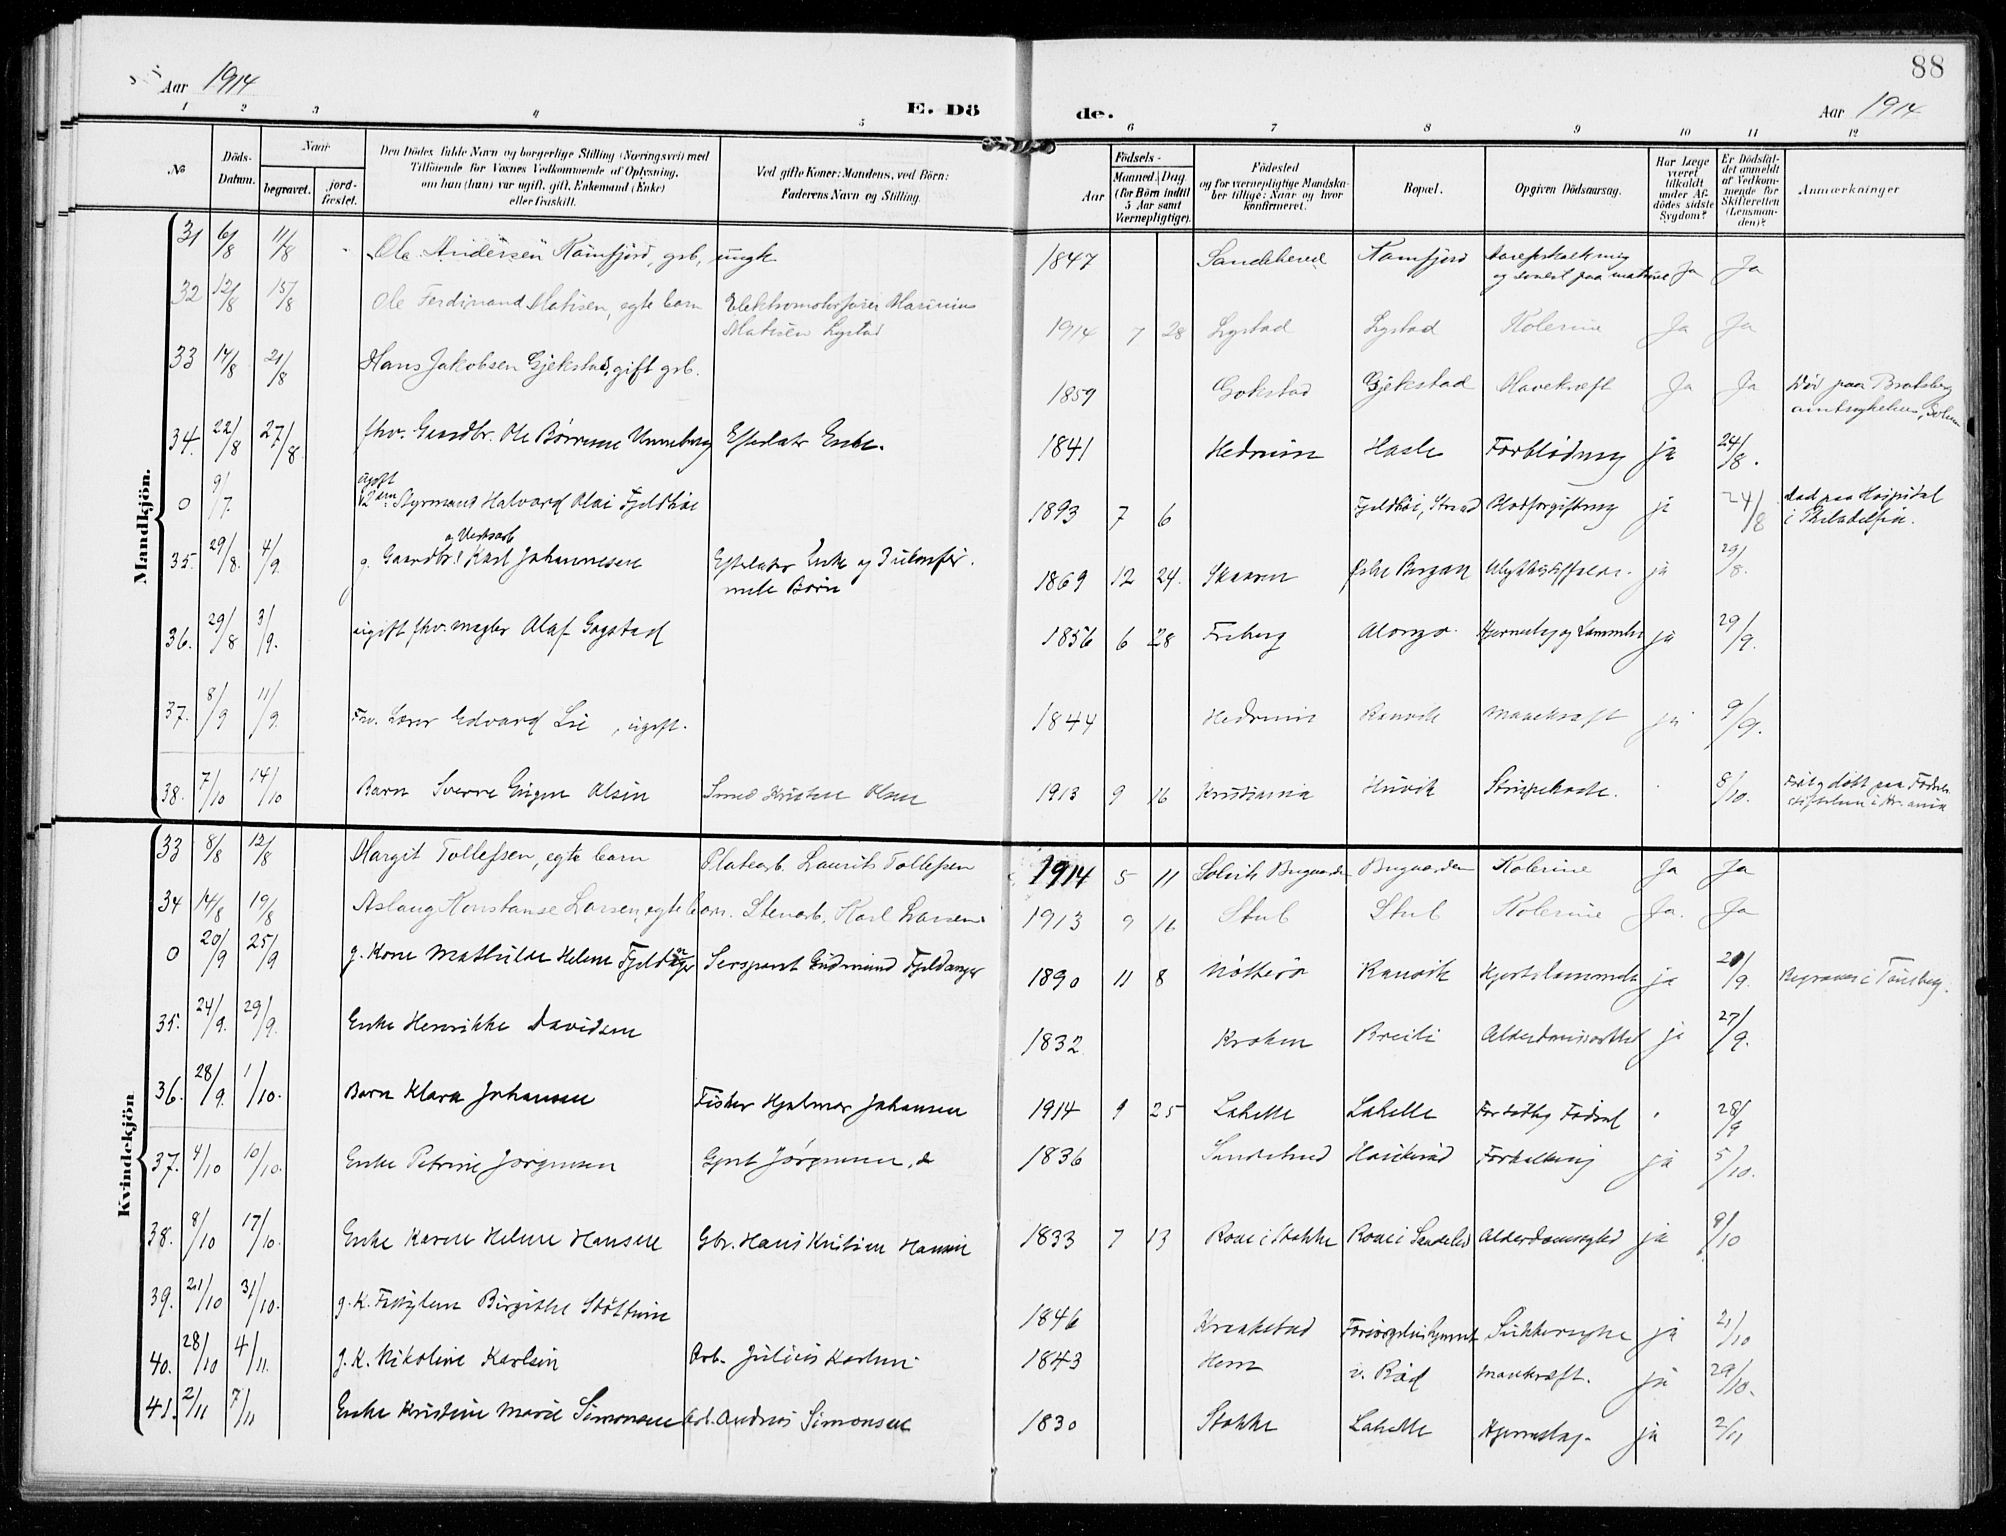 88
Aar 1914
E. Dö de.
Aar 1914
1 2 3 4 5 6 7 8 9 10 11 12
No
Döds-Datum.
Naar
begravet.
jord-fæstet.
Den Dödes fulde Navn og borgerlige Stilling (Næringsvei) med
Tilföiende for Voxnes Vedkommende af Oplysning,
om han (hun) var ugift, gift, Enkemand (Enke)
eller fraskilt.
Ved gifte Koner: Mandens, ved Börn:
Faderens Navn og Stilling.
Födsels-
Aar
Maaned. Dag
(for Börn indtil
5 Aar samt
Værnepligtige).
Födested
og for værnepligtige Mandska-
ber tillige: Naar og hvor
konfirmeret.
Bopæl.
Opgiven Dödsaarsag.
Har Læge
været
tilkaldt
under Af-
dödes sidste
Sygdom?
Er Dödsfal-
det anmeldt
af Vedkom-
mende for
Skifteretten
(Lensman-
den)?
Anmærkninger
Mandkjön.
31 6/8 11/8 Ole Andersen Kamfjord, grb, ungk. 1847 Sandeherred Kamfjord Aareforkalkning Ja Ja
32 12/8 15/8 Ole Ferdinand Matisen, egte barn Elektromotorfører Marinius
Matisen Lystad 1914 7 28 Lystad Lystad Kolerine Ja Ja
33 14/8 21/8 Hans Jakobsen Gjekstad, gift grb. 1859 Gokstad Gjekstad Mavekræft Ja Ja Död paa Bratsberg
34. 22/8 27/8. fhv. Gaardbr. Ole Børresen Unneberg Efterlater Enke. 1841 Hedrum Hasle Forblödning ja 24/8.
0 9/7. ugift
Styrmand Halvard Olai Fjeldhöi 1893 7 6 Fjeldhöi, Blodforgiftning ja 24/8 död paa Hospital
i Philadelfia.
35. 29/8. 4/9. g. Gaardbr. Karl Johannesen Efterlater Enke og
Börn 1869 12 24. Ulykkestilfælde. ja 29/8.
36. 29/8 3/9. ugift fhv. megler Olaf Gogstad 1856 6 28 Hjerneslag og ja 29/9.
37. 8/9 11/9. Fhv. Lærer Edvard Lie, ugift. 1844 Hedrum Ranvik Mavekræft ja 9/9.
38. 7/10 14/10 Barn Sverre Eugen Olsen Smed Kristen Olsen 1913 9 16 Kristiania Huvik Strupehoste. 8/10. Född og döbt paa Födsels-
Kvindekjön
33 8/8 12/8 Margit Tollefsen, egte barn Platearb. Laurits Tollefsen 1914 5 11 Bugaarden Kolerine Ja Ja
34 14/8 19/8 Aslaug Konstanse Larsen, egte barn. Stenarb. Karl Larsen 1913 9 16 Stub Stub Kolerine Ja. Ja
0 20/9 25/9 g. Kone Mathilde Helene Fjeldanger Sersjant Gudmund Fjeldanger 1890 11 8 Nötterö Ranvik ja 21/9. Begraves i Tönsberg.
35. 24/9. 29/9. Enke Henrikke Davidsen 1832 Kroken Breili ja 27/9.
36. 28/9. 1/10. Barn Klara Johansen Fisker Hjalmar Johansen 1914 9 25 Lahelle Lahelle For tidlig Födsel 28/9
37. 4/10 10/10. Enke Petrine Jörgensen Jörgensen 1836 Sandeherred Haukeröd Forkalkning ja 5/10.
38. 8/10 17/10. Enke Karen Helene Hansen Gbr. Hans Kristian Hansen 1833 7 13 Roae i Stokke Roae i Sandehrd Alderdomssvaghed ja 9/10
39. 21/10 31/10. g. K. Birgitte 1846 Kraakstad Sukkersyke ja 21/10
40. 28/10 4/11. g. K. Nikoline Karlsen Arb. Julius Karlsen 1843 Hem v. Röd Mavekræft. ja 29/10.
41. 2/11 7/11 Enke Kristine Marie Simonsen Arb. Andreas Simonsen 1830 Stokke Lahelle Hjerneslag. ja 2/11